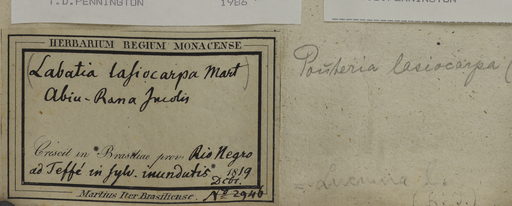 T.D.PENNINGTON 1986
PENNINGTON
HERBARIUM REGIUM MONACENSE
(Labatia lasiocarpa Mart)
Abiu-Rana Incolis
Crescit in Brasiliae prov. Rio Negro
ad Teffé in sylv. inundatis 1819
Decbr.
Martius Iter Brasiliense. No 2946
Pouteria lasiocarpa (
= Lucuma l.